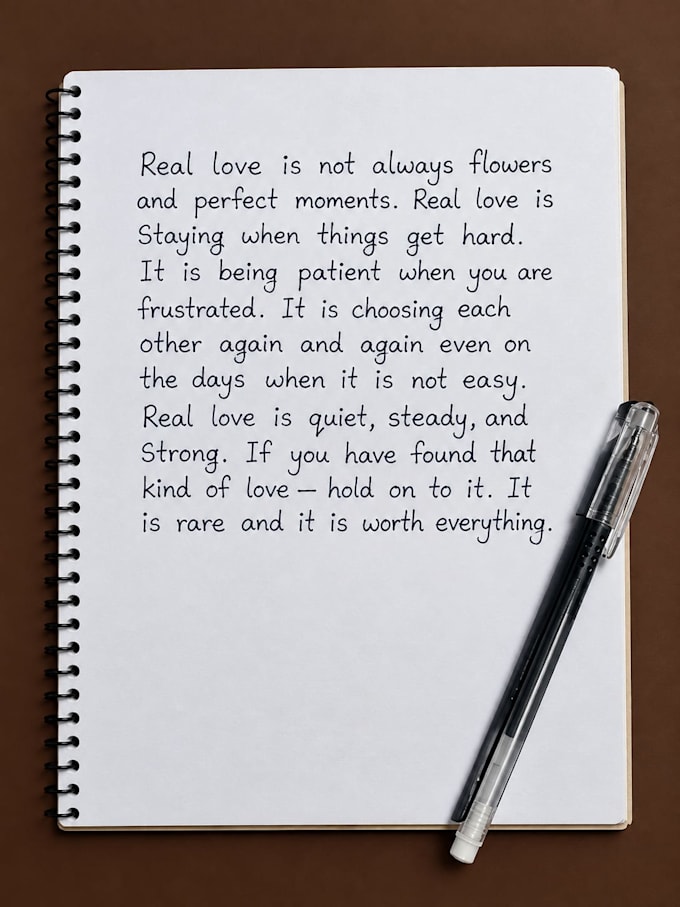 Real love is not always flowers
and perfect moments. Real love is
Staying when things get hard.
It is being patient when you are
frustrated. It is choosing each
other again and again even on
the days when it is not easy.
Real love is quiet, steady, and
Strong. If you have found that
kind of love — hold on to it. It
is rare and it is worth everything.